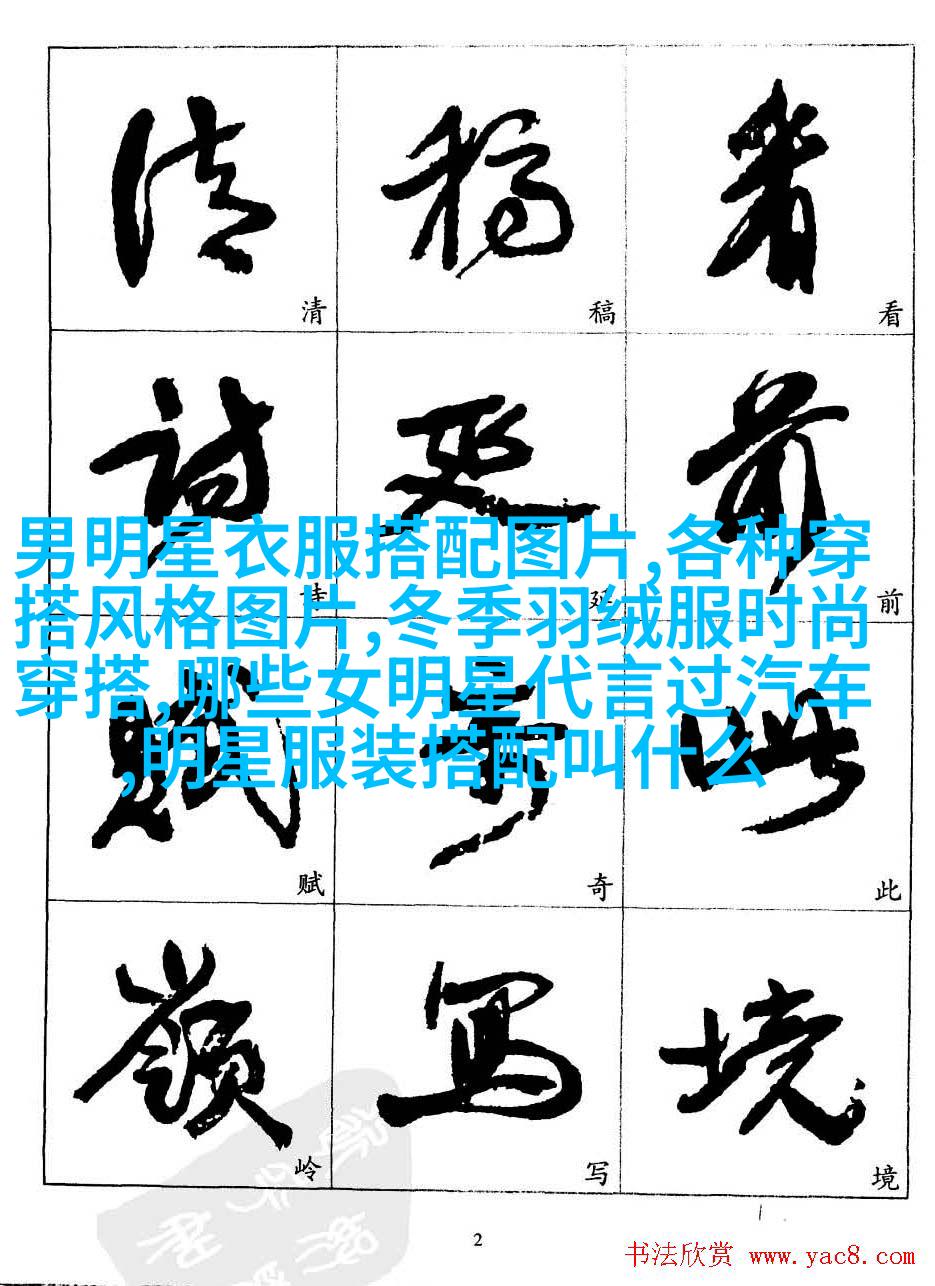 清 稿 看
清 稿 看
詩 延 前
男明星衣服搭配图片,各种穿
搭风格图片,冬季羽绒服时尚
穿搭,哪些女明星代言过汽车
,明星服装搭配叫什么
诗 延 前
賦 奇 此
赋 奇 此
嶺 寫 境
岭 写 境
2
书法欣赏 www.yac8.com